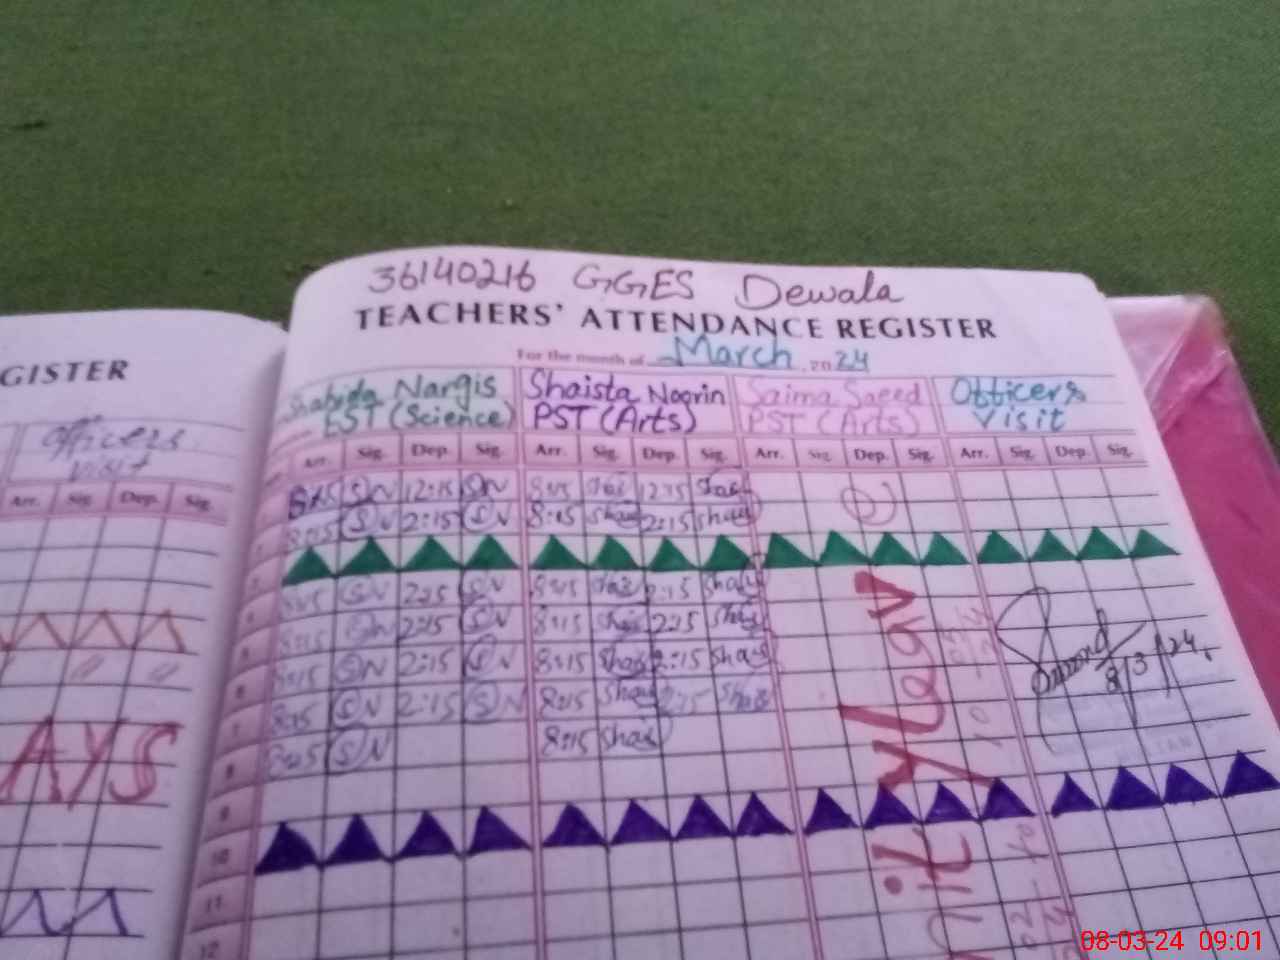 36140216 GGES Dewala
TEACHERS' ATTENDANCE REGISTER
For the month of March, 2024
Shahida Nargis
EST (Science)
Shaista Noorin
PST (Arts)
Saima Saeed
PST (Arts)
Officers
Visit
Arr. Sig. Dep. Sig. Arr. Sig. Dep. Sig. Arr. Sig. Dep. Sig. Arr. Sig. Dep. Sig.
8:15 SN 12:15 SN 8:15 Shai 12:15 Shai
8:15 SN 2:15 SN 8:15 Shai 2:15 Shai
8:15 SN 2:15 SN 8:15 Shai 2:15 Shai
8:15 SN 2:15 SN 8:15 Shai 2:15 Shai
8:15 SN 2:15 SN 8:15 Shai 2:15 Shai
8:15 SN 2:15 SN 8:15 Shai 2:15 Shai
8:15 SN 8:15 Shai
8/3/24
9
10
11
12
GISTER
Officers
Visit
Arr. Sig. Dep. Sig.
AYS
08-03-24 09:01